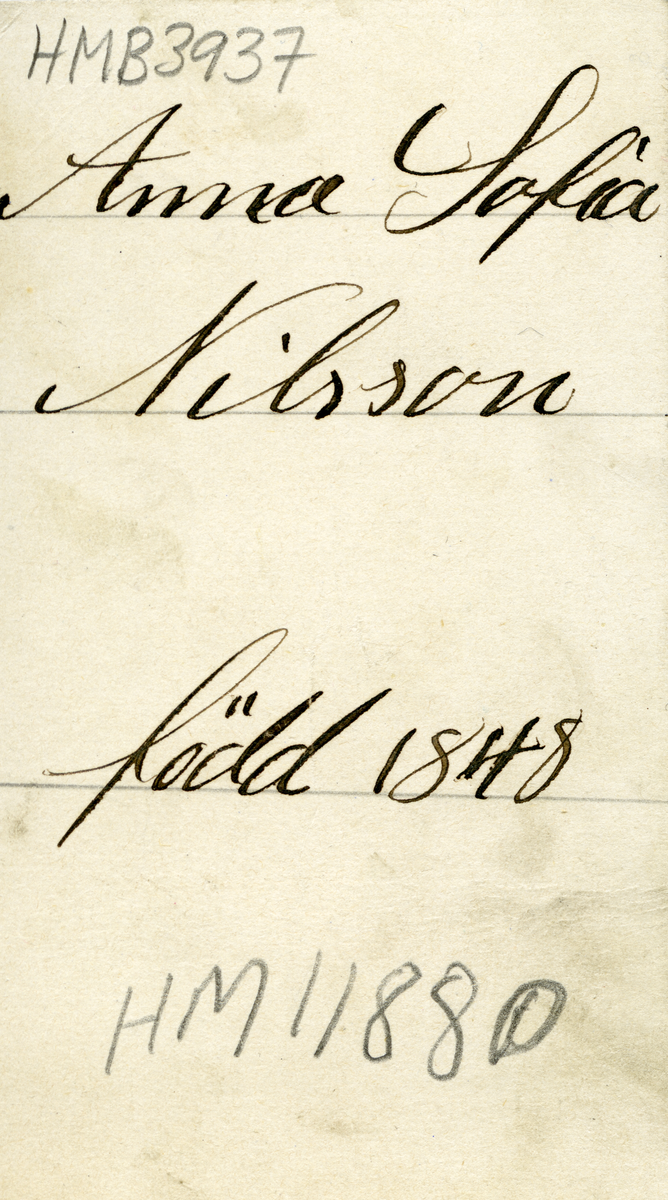 HMB3937
Anna Sofia
Nilsson
född 1848
HM11880